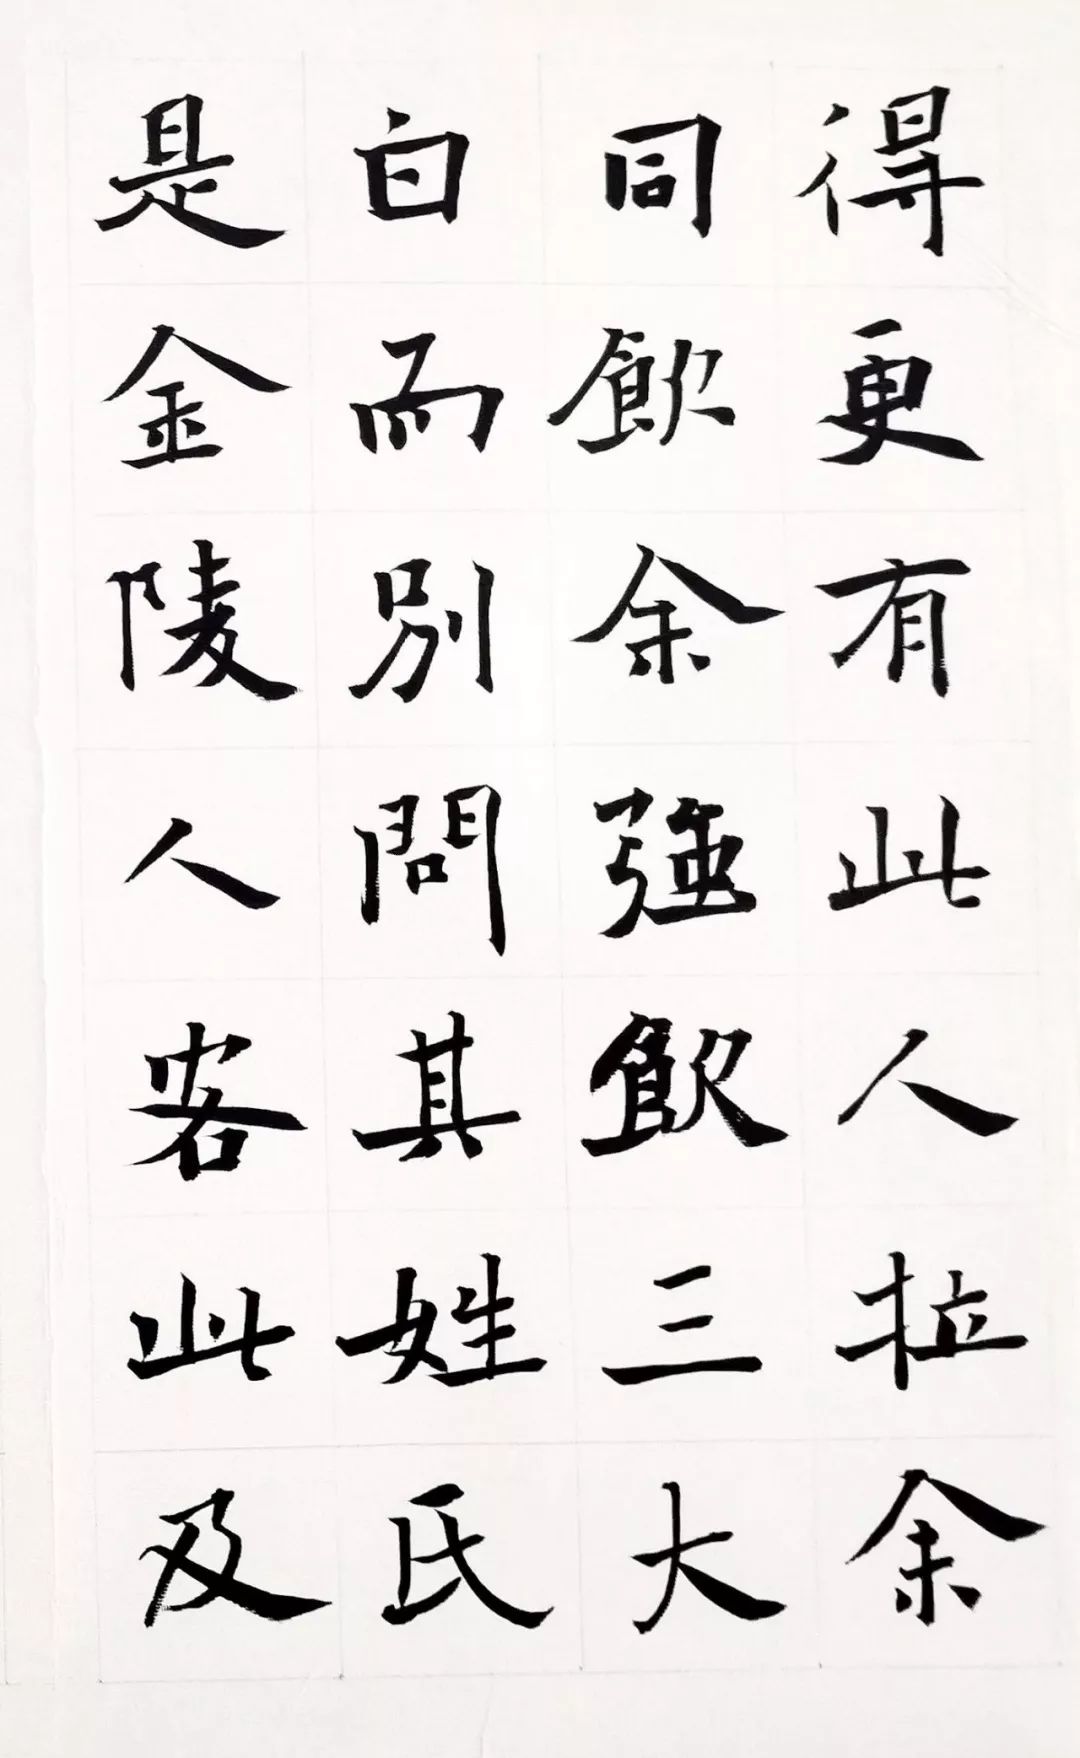 得更有此人拉余
同飲余強飲三大
白而別問其姓氏
是金陵人客此及